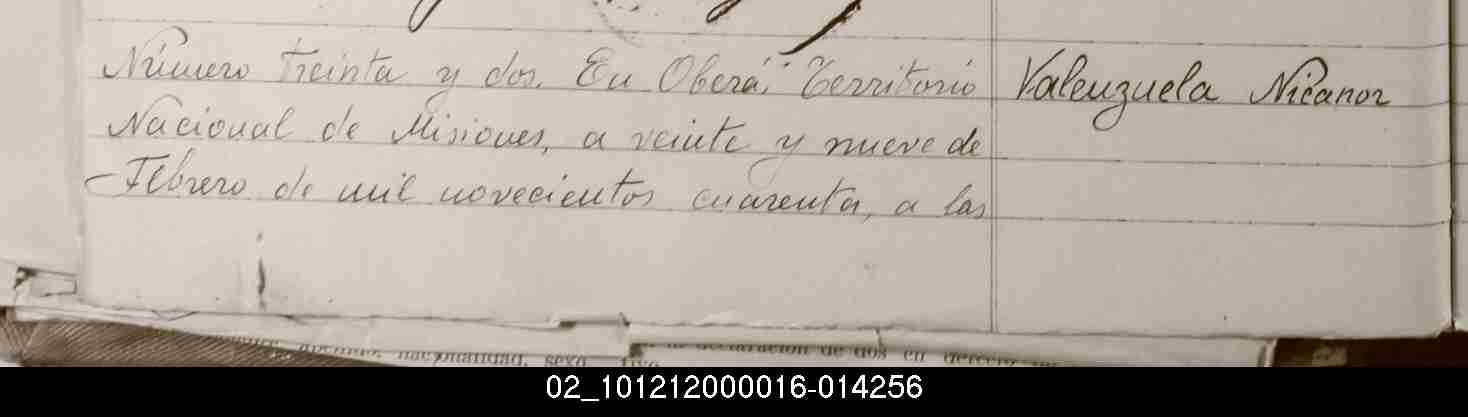 Número treinta y dos. En Oberá, Territorio
Valenzuela Nicanor
Nacional de Misiones, a veinte y nueve de
Febrero de mil novecientos cuarenta, a las
nacionalidad, sexo
declaración de dos en
02_101212000016-014256